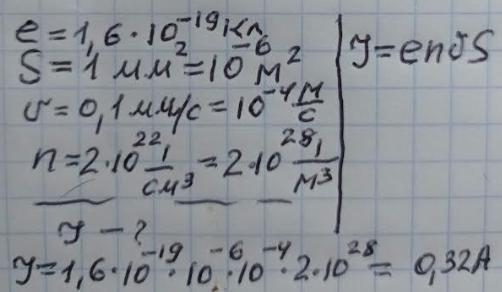 e = 1,6 · 10⁻¹⁹ Кл
S = 1 мм² = 10⁻⁶ м²
υ = 0,1 мм/с = 10⁻⁴ м/с
n = 2 · 10²² 1/см³ = 2 · 10²⁸ 1/м³
J = enυS
J – ?
J = 1,6 · 10⁻¹⁹ · 10⁻⁶ · 10⁻⁴ · 2 · 10²⁸ = 0,32А